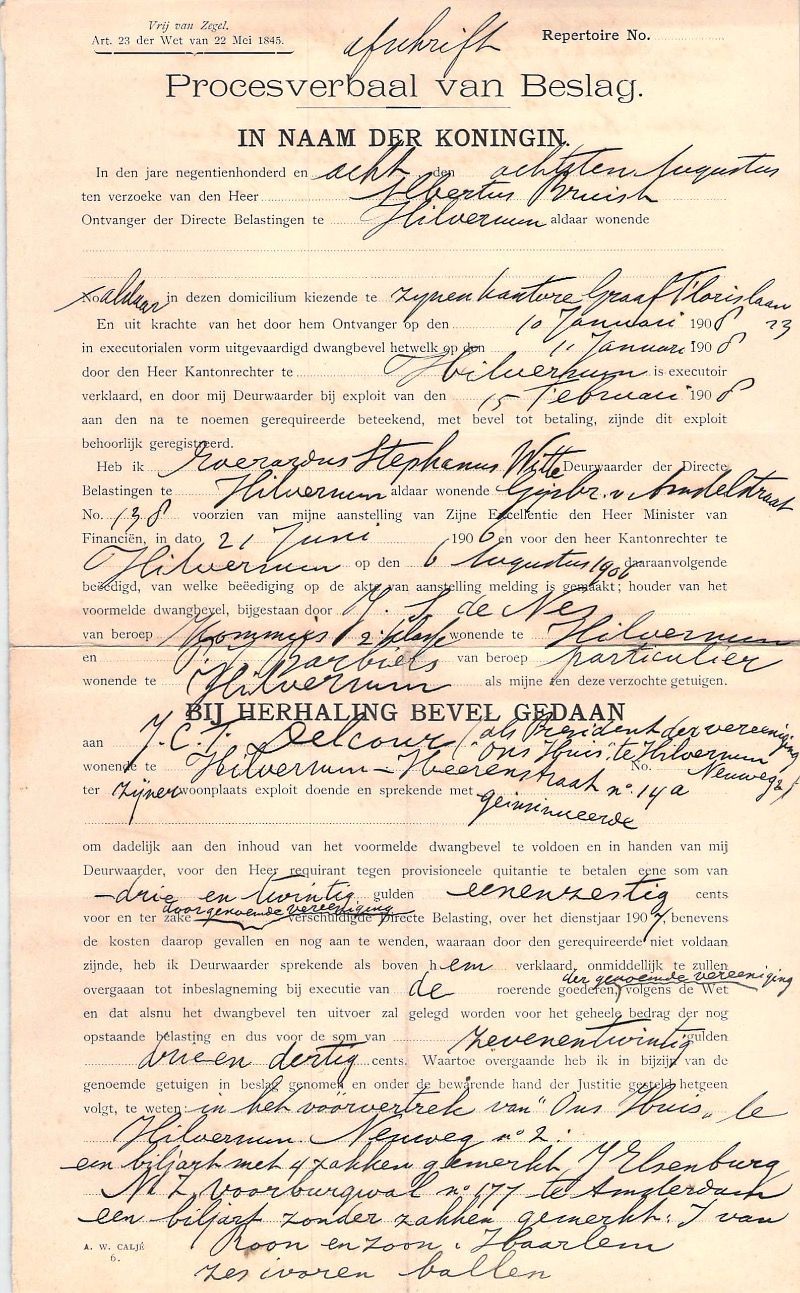 Vrij van Zegel.
Art. 23 der Wet van 22 Mei 1845.
afschrift
Repertoire No.
Procesverbaal van Beslag.
IN NAAM DER KONINGIN.
In den jare negentienhonderd en acht den achtsten Augustus
ten verzoeke van den Heer Albertus
Ontvanger der Directe Belastingen te Hilversum aldaar wonende
No aldaar in dezen domicilium kiezende te zynen kantore Graaf Florislaan 23
En uit krachte van het door hem Ontvanger op den 10 Januari 1908
in executorialen vorm uitgevaardigd dwangbevel hetwelk op den 11 Januari 1908
door den Heer Kantonrechter te Hilversum is executoir
verklaard, en door mij Deurwaarder bij exploit van den 15 Februari 1908
aan den na te noemen gerequireerde beteekend, met bevel tot betaling, zijnde dit exploit
behoorlijk geregistreerd.
Heb ik Everardus Stephanus Witte Deurwaarder der Directe
Belastingen te Hilversum aldaar wonende Gijsbr. v. Amstelstraat
No. 138 voorzien van mijne aanstelling van Zijne Excellentie den Heer Minister van
Financiën, in dato 21 Juni 1906 en voor den heer Kantonrechter te
Hilversum op den 6 Augustus 1906 daaraanvolgende
beëedigd, van welke beëediging op de akte van aanstelling melding is gemaakt; houder van het
voormelde dwangbevel, bijgestaan door de Nes
van beroep Kommies 2e klasse wonende te Hilversum
en Barbiers van beroep particulier
wonende te Hilversum als mijne ten deze verzochte getuigen.
BIJ HERHALING BEVEL GEDAAN
aan J. C. F. Delcour (als President der vereeniging "Ons Huis" te Hilversum
wonende te Hilversum - Heerenstraat No. Neuweg 2)
ter zijner woonplaats exploit doende en sprekende met no. 14a
geinsinueerde
om dadelijk aan den inhoud van het voormelde dwangbevel te voldoen en in handen van mij
Deurwaarder, voor den Heer requirant tegen provisioneele quitantie te betalen eene som van
drie en twintig gulden eenenzestig cents
voor en ter zake door genoemde vereeniging verschuldigde Directe Belasting, over het dienstjaar 1907, benevens
de kosten daarop gevallen en nog aan te wenden, waaraan door den gerequireerde niet voldaan
zijnde, heb ik Deurwaarder sprekende als boven hem verklaard, onmiddelijk te zullen
overgaaan tot inbeslagneming bij executie van de roerende goederen, der genoemde vereeniging volgens de Wet
en dat alsnu het dwangbevel ten uitvoer zal gelegd worden voor het geheele bedrag der nog
opstaande belasting en dus voor de som van zevenentwintig gulden
drieen dertig cents. Waartoe overgaande heb ik in bijzijn van de
genoemde getuigen in beslag genomen en onder de bewarende hand der Justitie gesteld hetgeen
volgt, te weten: in het voorvertrek van "Ons Huis" te
Hilversum Neuweg no 2:
een biljart met 4 zakken gemerkt J Elsenburg
N. Z. Voorburgwal no 177 te Amsterdam
een biljart zonder zakken gemerkt: J van
Roon en zoon. Haarlem
zes ivoren ballen
A. W. CALJÉ
6.